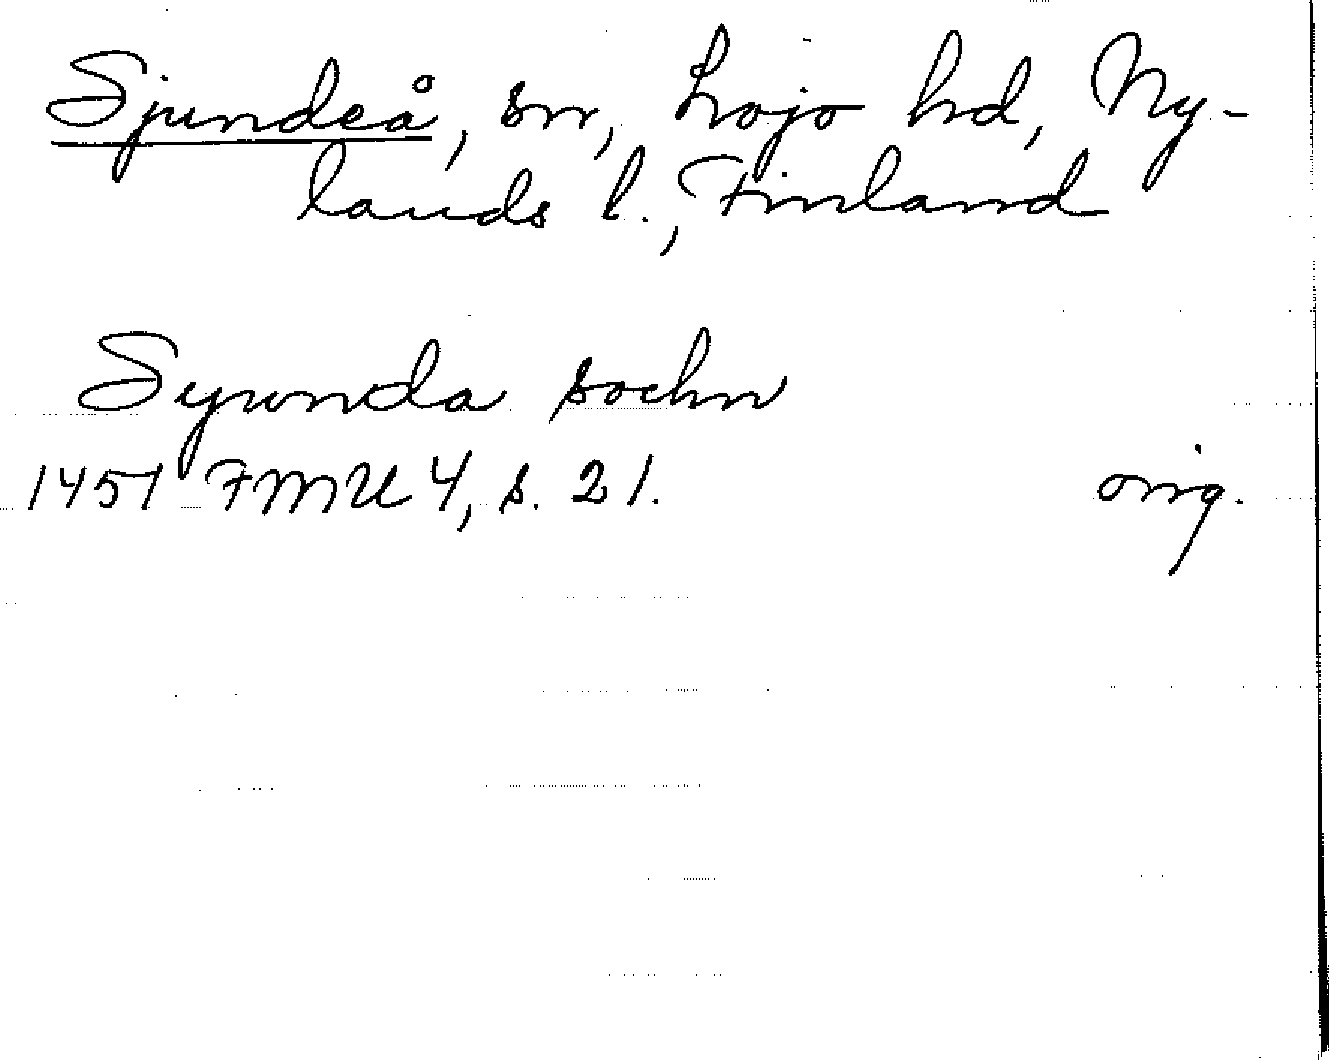 Sjundeå, sn, Lojo hd, Ny-
lands l., Finland
Syunda sochn
1451 FMU 4, s. 21. orig.